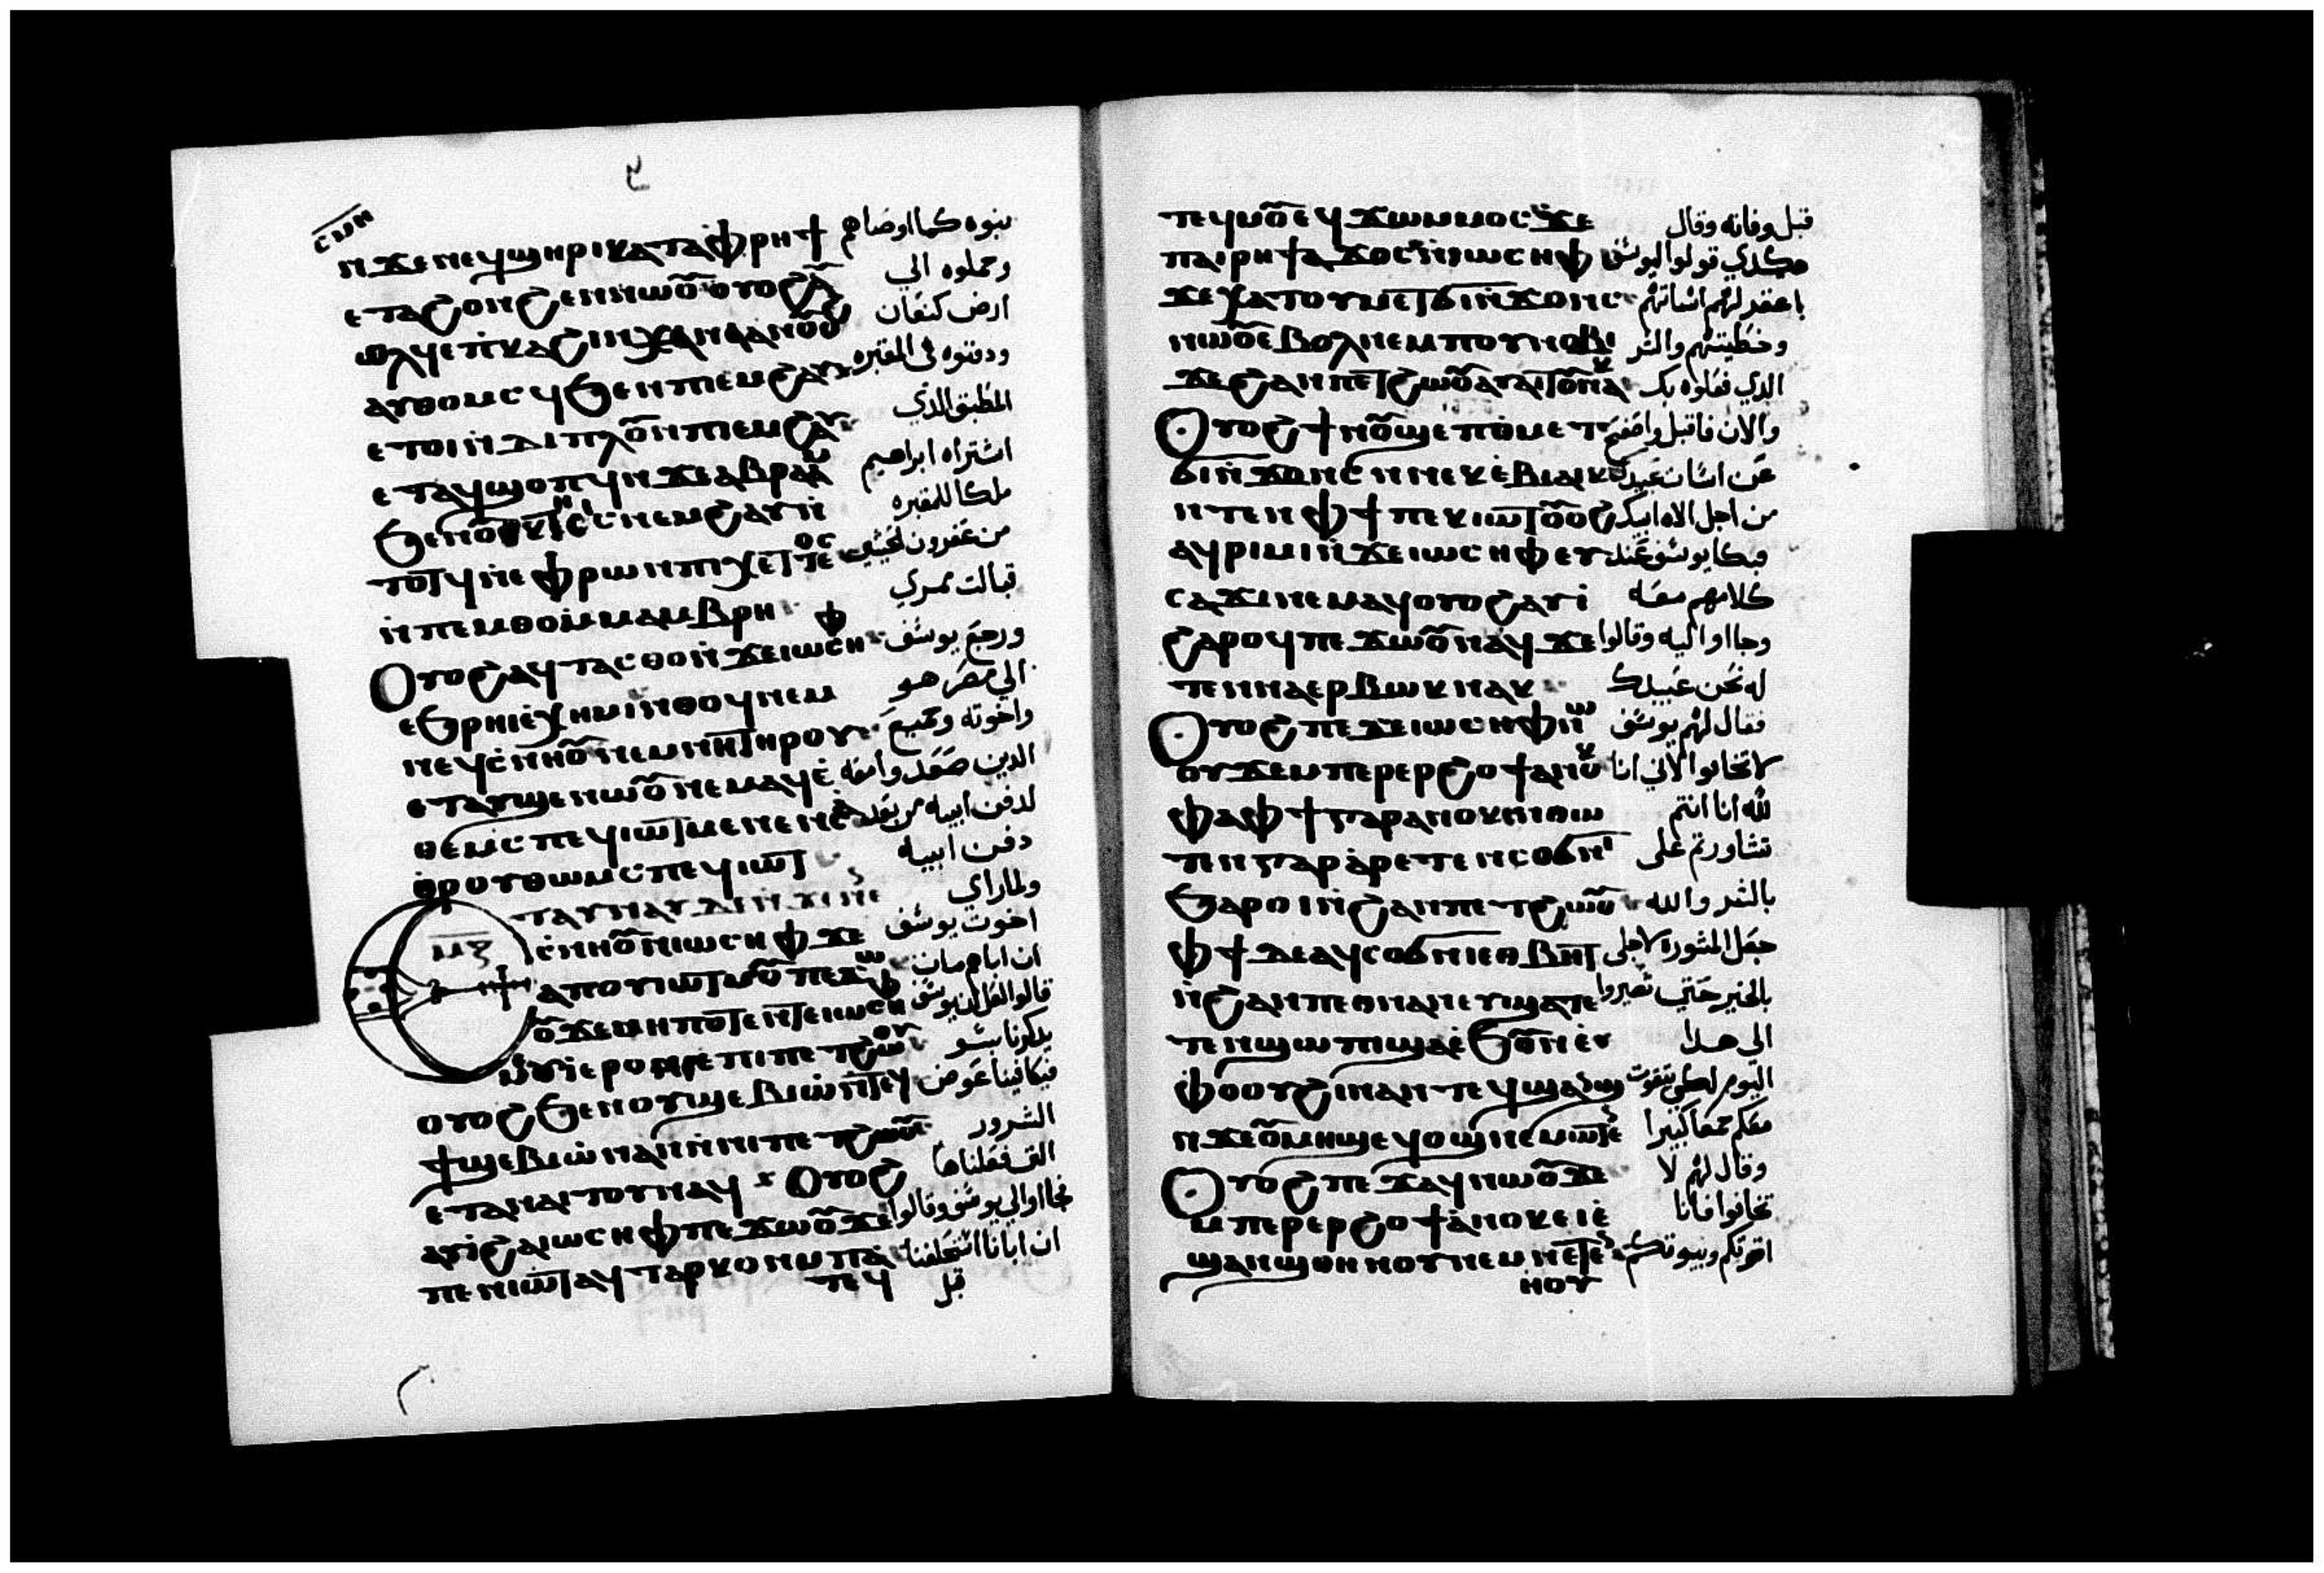 ⲥⲙⲏ
ⲛϫⲉⲛⲉϥϣⲏⲣⲓⲕⲁⲧⲁⲫⲣⲏϯ بنوه كما اوصاهم
ⲉⲧⲁϥϩⲟⲛϩⲉⲛⲛⲱⲟⲩⲟⲩⲟϩⲁⲩ وحملوه الي
ⲟⲗϥⲉⲡⲕⲁϩⲓⲛⲭⲁⲛⲁⲁⲛⲟⲩⲟϩ ارض كنعان
ⲁⲩⲑⲟⲙⲥϥϧⲉⲛⲡⲓⲉⲙϩⲁⲩ ودفنوه في المقبره
ⲉⲧⲟⲓⲛⲇⲓⲡⲗⲟⲩⲛⲡⲓⲉⲙϩⲁⲩ المطبق الذي
ⲉⲧⲁϥϣⲟⲡϥⲛϫⲉⲁⲃⲣⲁⲁⲙ اشتراه ابراهيم
ملكا للمقبره
ⲧⲟⲧϥⲛⲉⲫⲣⲱⲛⲡⲓⲭⲉⲧⲧⲉⲟⲥ من عفرون الحيثي
ⲙⲡⲉⲙⲑⲟⲙⲙⲁⲙⲃⲣⲏ قبالت ممري
ⲟⲩⲟϩⲁϥⲧⲁⲥⲑⲟⲛϫⲉⲓⲱⲥⲏⲫ ورجع يوسف
ⲉϧⲣⲏⲓⲉⲭⲏⲙⲓⲛⲑⲟϥⲛⲉⲙ الي مصر هو
ⲛⲉϥⲥⲛⲏⲟⲩⲛⲉⲙⲛⲏⲧⲏⲣⲟⲩ واخوته وجميع
ⲉⲧⲁⲩϣⲉⲛⲱⲟⲩⲛⲉⲙⲁϥⲉ الدين صعدوا معه
ⲑⲉⲙⲥⲡⲉϥⲓⲱⲧⲙⲉⲛⲉⲛⲥⲁ لدفن ابيه من بعد
ⲑⲣⲟⲩⲑⲱⲙⲥⲡⲉϥⲓⲱⲧ دفن ابيه
ⲉⲧⲁⲩⲛⲁⲩⲇⲉⲛϫⲉⲛⲉ ولما راي
ⲙⲍ
ⲥⲛⲏⲟⲩⲛⲓⲱⲥⲏⲫϫⲉ اخوت يوسف
ⲁⲡⲟⲩⲓⲱⲧⲙⲟⲩⲡⲉϫⲱ ان اباهم مات
ⲟⲩϫⲉⲙⲏⲡⲟⲧⲉⲛⲧⲉⲓⲱⲥⲏⲫ قالوا لعل ان يوسف
ⲉⲣⲟⲛⲛⲣⲉⲡⲓⲡⲉⲧϩⲱⲟⲩ يدكرنا بسو
ⲟⲩⲟϩϧⲉⲛⲟⲩϣⲉⲃⲓⲱⲛⲧⲉϥ فيكافينا عوض
ϯϣⲉⲃⲓⲱⲛⲁⲛⲛⲛⲓⲡⲉⲧϩⲱⲟⲩ الشرور
ⲉⲧⲁⲛⲁⲓⲧⲟⲩⲛⲁϥ ⲟⲩⲟϩ التي فعلناها
ⲁⲩⲓϩⲁⲓⲱⲥⲏⲫⲡⲉϫⲱⲟⲩϫⲉ فجااوا الي يوسف وقالوا
ⲡⲉⲛⲓⲱⲧⲁϥⲧⲁⲣⲕⲟⲛⲙⲡⲁ ان ابانا استحلفنا
ⲧⲉϥ قبل
ⲧⲉϥⲙⲟⲩⲉϥϫⲱⲙⲙⲟⲥϫⲉ قبل وفاته وقال
ⲡⲁⲓⲣⲏϯⲁϫⲟⲥⲛⲓⲱⲥⲏⲫ هكدي قولوا ليوسف
ϫⲉⲭⲁⲧⲟⲩⲙⲉⲧϭⲓⲛϫⲟⲛⲥ اغفر لهم اساتهم
ⲛⲱⲟⲩⲉⲃⲟⲗⲛⲉⲙⲡⲟⲩⲛⲟⲃⲓ وخطيتهم والشر
ϫⲉϩⲁⲛⲡⲉⲧϩⲱⲟⲩⲁⲩⲁⲓⲧⲟⲩⲛⲁⲕ الدي فعلوه بك
ⲟⲩⲟϩϯⲛⲟⲩϣⲉⲡⲟⲙⲉⲧ والان فاقبل واصفح
ϭⲓⲛϫⲟⲛⲥⲛⲛⲉⲕⲉⲃⲓⲁⲓⲕ عن اسات عبيدك
ⲛⲧⲉⲛⲫϯⲡⲉⲕⲓⲱⲧⲟⲩⲟϩ من اجل الاه ابيك
ⲁϥⲣⲓⲙⲓⲛϫⲉⲓⲱⲥⲏⲫⲉⲩ فبكا يوسف عند
ⲥⲁϫⲓⲛⲉⲙⲁϥⲟⲩⲟϩⲁⲩⲓ كلامهم معه
ϩⲁⲣⲟϥⲡⲉϫⲱⲟⲩⲛⲁϥϫⲉ وجااوا اليه وقالوا
ⲧⲉⲛⲛⲁⲉⲣⲃⲱⲕⲛⲁⲕ له نحن عبيدك
ⲟⲩⲟϩⲡⲉϫⲉⲓⲱⲥⲏⲫⲛⲱ فقال لهم يوسف
ⲟⲩϫⲉⲙⲡⲉⲣⲉⲣϩⲟϯⲁⲛⲟⲕ لا تخافوا لاني انا
ⲫⲁⲫϯⲅⲁⲣⲁⲛⲟⲕⲛⲑⲱ لله انا انتم
ⲧⲉⲛⲅⲁⲣⲁⲣⲉⲧⲉⲛⲥⲟϭⲛⲓ تشاورتم علي
ϧⲁⲣⲟⲓⲛϩⲁⲛⲡⲉⲧϩⲱⲟⲩ بالشر والله
ⲫϯⲇⲉⲁϥⲥⲟϭⲛⲓⲉⲑⲃⲏⲧ جعل المشورة لاجلي
ⲛϩⲁⲛⲡⲉⲑⲛⲁⲛⲉⲩϣⲁⲧⲉ بالخير حتي تصيروا
ⲧⲉⲛϣⲱⲡⲓϣⲁⲉϧⲟⲩⲛⲉ الي هدا
ⲫⲟⲟⲩϩⲓⲛⲁⲛⲧⲉϥϣⲁⲛϣ اليوم لكي تقوت
ⲛϫⲉⲟⲩⲙⲏϣⲉϥⲟϣⲛⲉⲙⲱⲧⲉ معكم جمعا كبيرا
ⲟⲩⲟϩⲡⲉϫⲁϥⲛⲱⲟⲩϫⲉ وقال لهم لا
ⲙⲡⲉⲣⲉⲣϩⲟϯⲁⲛⲟⲕⲉⲓⲉ تخافوا فانا
ϣⲁⲛϣⲑⲏⲛⲟⲩⲛⲉⲙⲛⲉⲧⲉ اقوتكم وبيوتكم
ⲛⲟⲩ